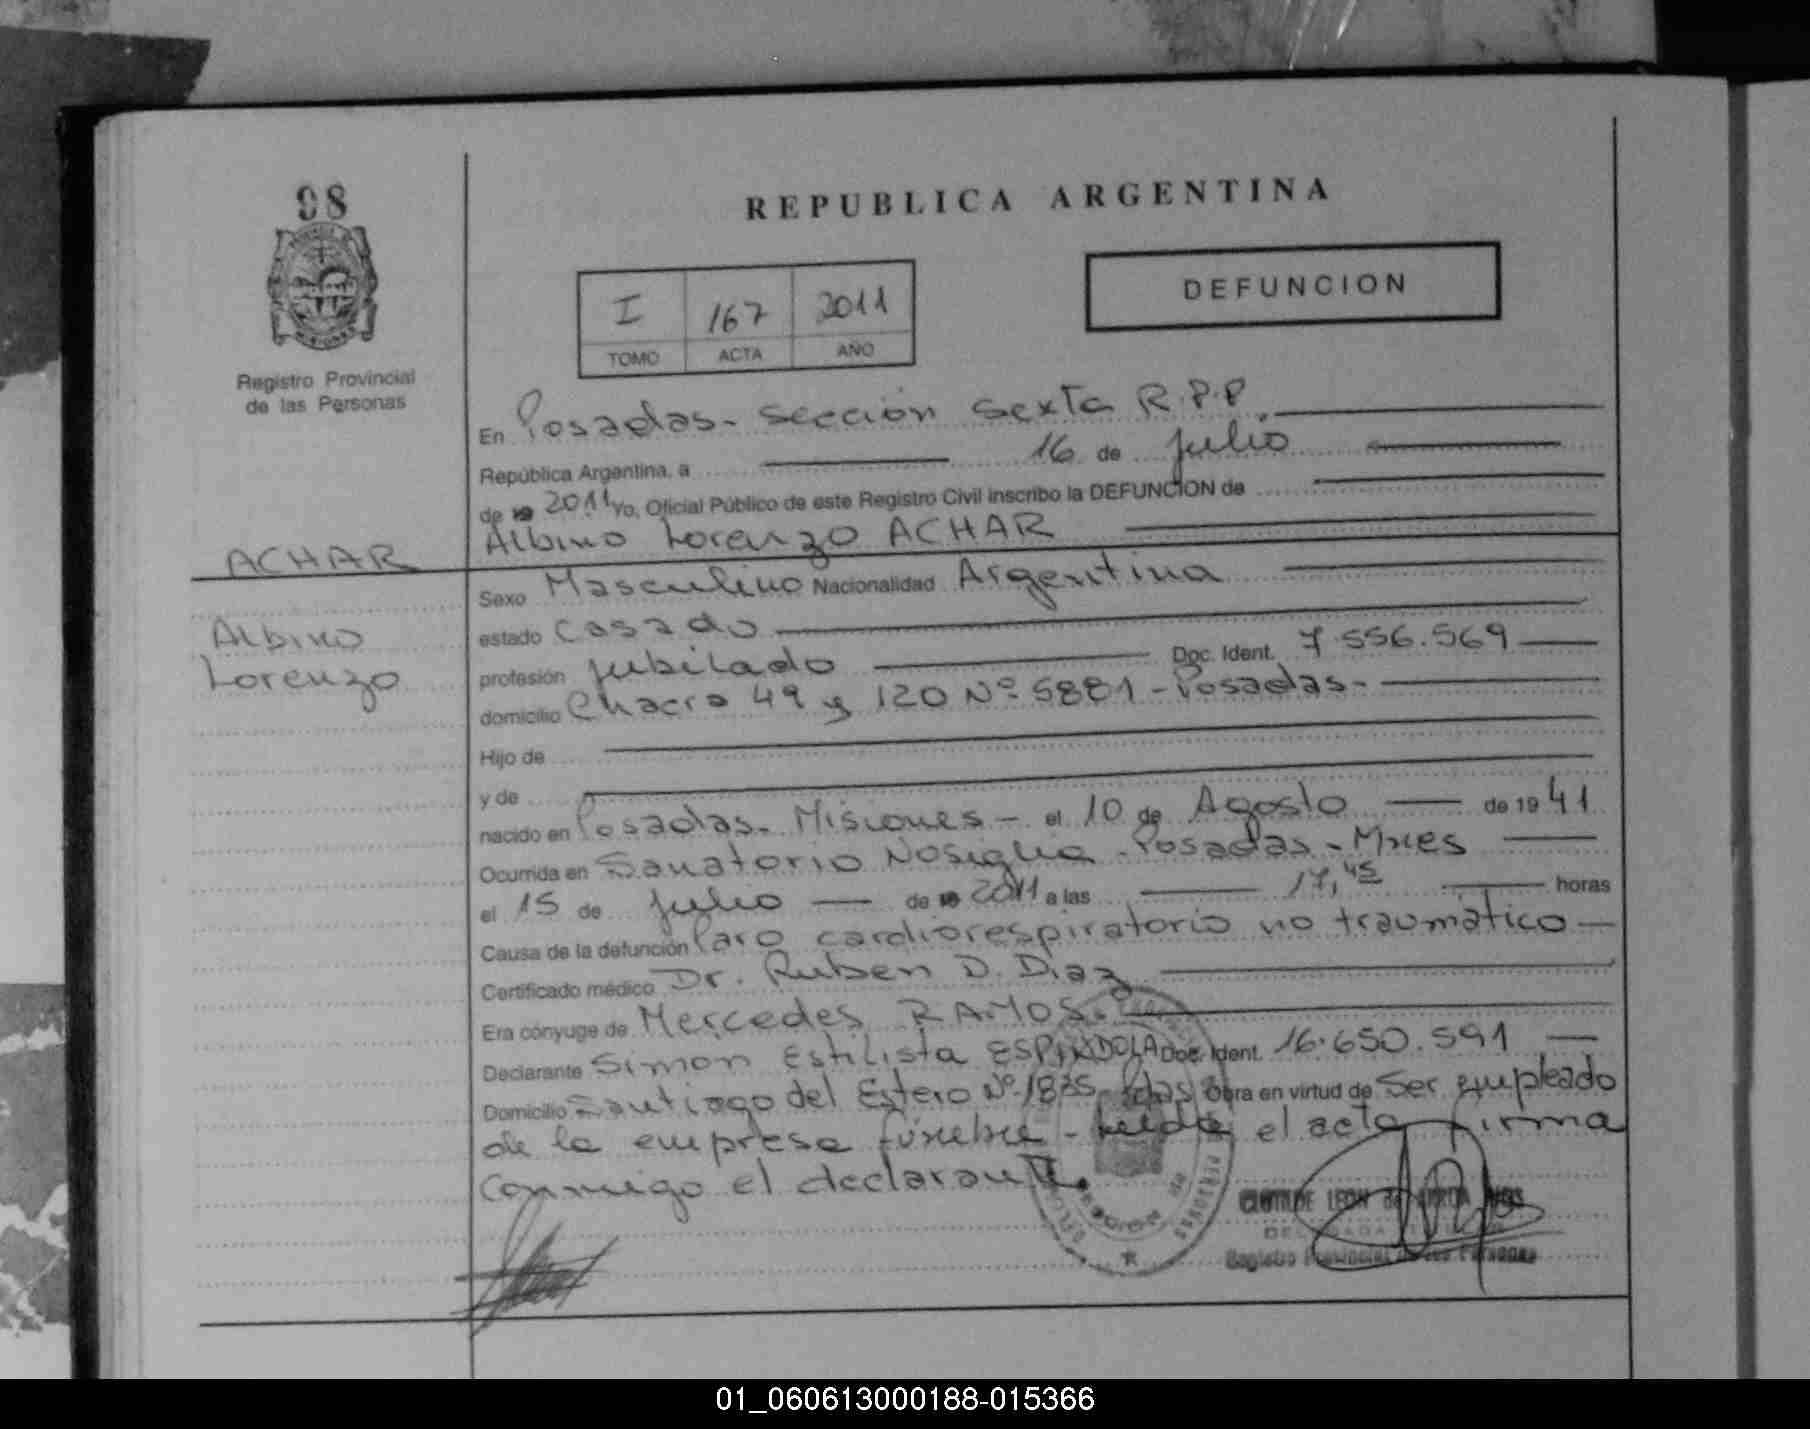 98
REPUBLICA ARGENTINA
DEFUNCION
I 167 2011
TOMO ACTA AÑO
Registro Provincial
de las Personas
En Posadas - Sección Sexta R.P.P.
República Argentina, a 16 de Julio
de 19 2011 Yo, Oficial Público de este Registro Civil inscribo la DEFUNCION de
Albino Lorenzo ACHAR
ACHAR
Albino
Lorenzo
Sexo Masculino Nacionalidad Argentina
estado Casado
profesión Jubilado Doc. Ident. 7.556.569
domicilio Chacra 49 y 120 Nº 5881 - Posadas -
Hijo de
y de
nacido en Posadas - Misiones - el 10 de Agosto de 19 41
Ocurrida en Sanatorio Nosiglia - Posadas - Mnes
el 15 de Julio de 19 2011 a las 17,45 horas
Causa de la defunción Paro cardiorespiratorio no traumático
Certificado médico Dr. Ruben D. Diaz
Era cónyuge de Mercedes RAMOS.
Declarante Simon Estilista ESPINDOLA Doc. Ident. 16.650.591
Domicilio Santiago del Estero Nº 1835 - Pdas Obra en virtud de Ser empleado
de la empresa fúnebre - Leída el acta firma
conmigo el declarante.
CLOTILDE LEON de
DELEGADA
Registro Provincial de las Personas
01_060613000188-015366